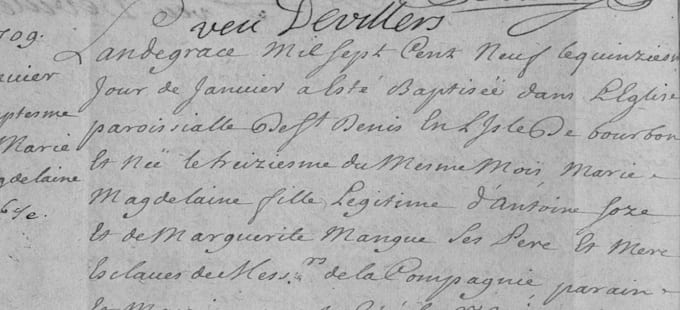 veu Devillers
709. Landegrace Mil sept Cent Neuf le quinziesm
nvier Jour de Janvier a Esté Baptiseé dans L'Eglise
ptesme paroissialle De St Denis En L'Isle De bourbon
Marie Et Neé le treiziesme du Mesme Mois Marie
gdelaine Magdelaine fille Legitime d'Antoine Joze
Et de Marguerite Mangue Ses Pere Et Mere
Esclaves de Mess.rs de la Compagnie parain